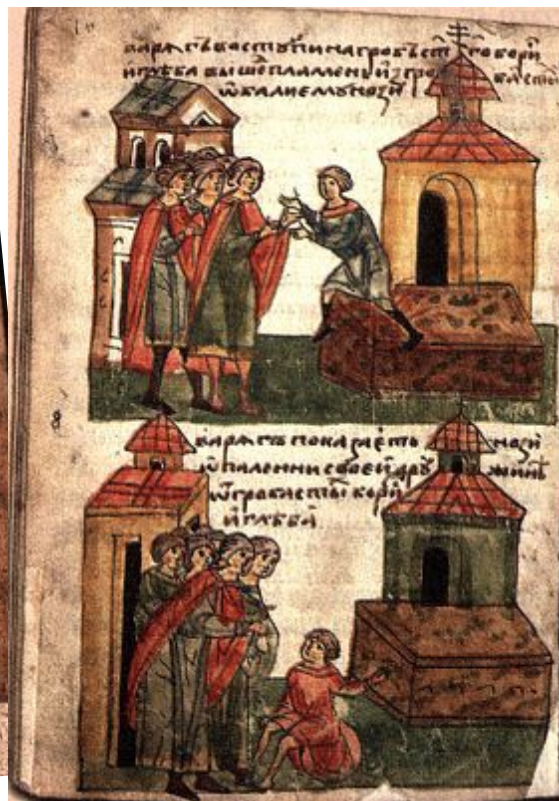 варѧгъ воступи на гробъ ст҃го бори
и глѣба выше пламень изгро ба ст҃ою
ѡпали ему нози
варѧгъ показаеть нози
ѡпалении своеи дру жинѣ
ѿ гроба ст҃ы бори
и глѣба